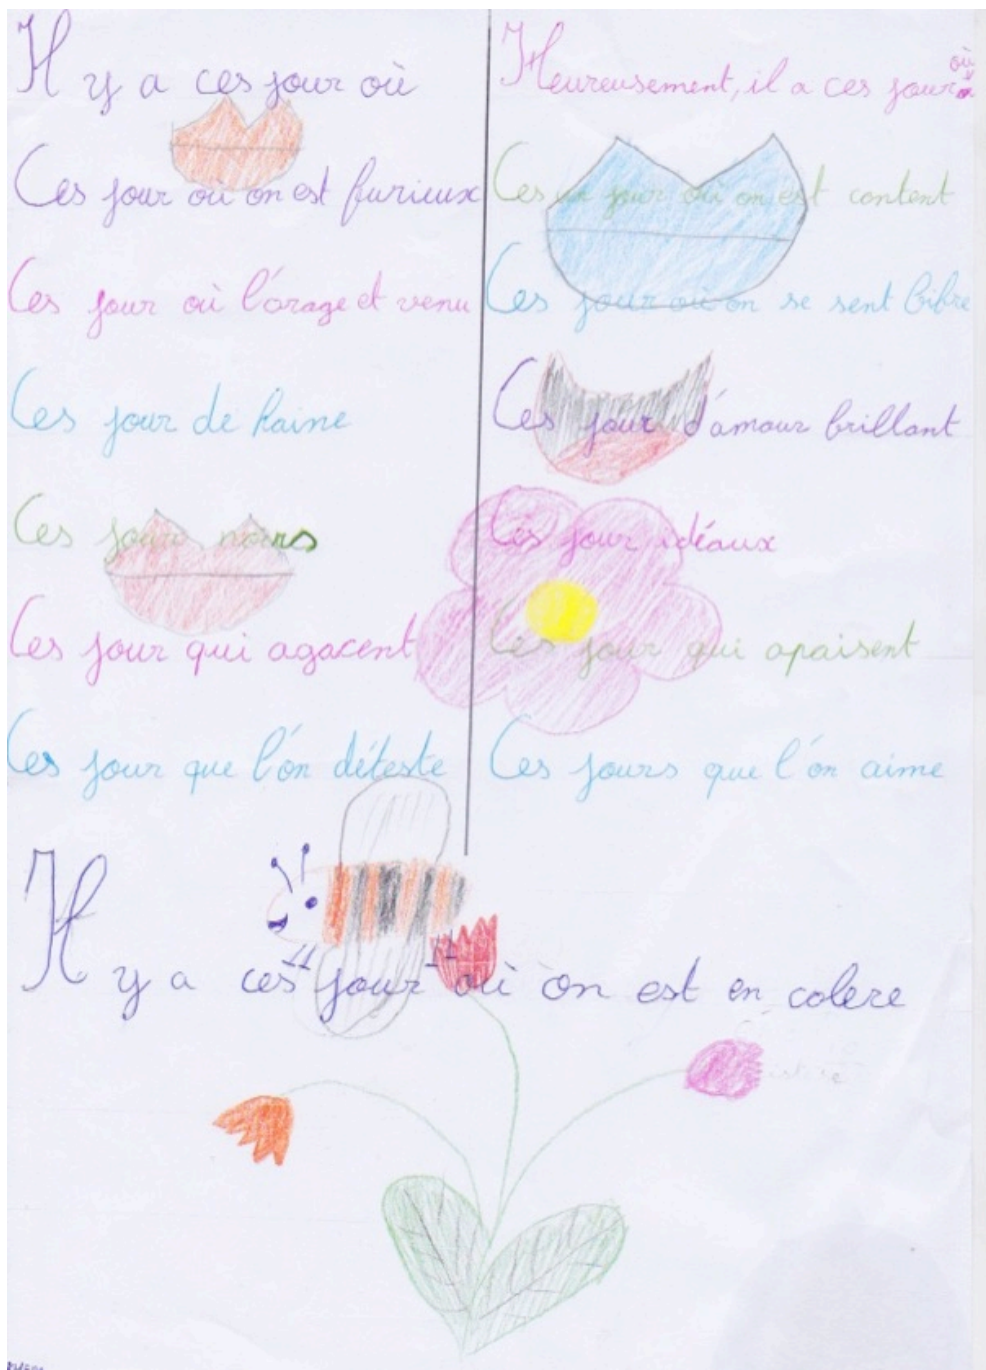 Il y a ces jour où
Ces jour où on est furieux
Ces jour où l'orage et venu
Ces jour de haine
Ces jour noirs
Ces jour qui agacent
Ces jour que l'on déteste
Heureusement, il a ces jours où
Ces jour où on est content
Ces jour où on se sent libre
Ces jour d'amour brillant
Ces jour idéaux
Ces jour qui apaisent
Ces jours que l'on aime
Il y a ces jour où on est en colere